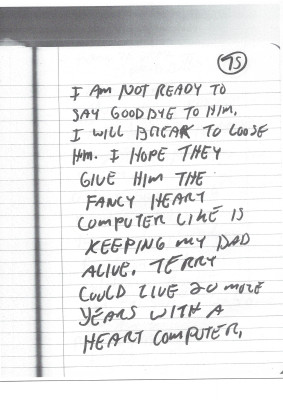 75
I AM NOT READY TO
SAY GOODBYE TO HIM,
I WILL BREAK TO LOOSE
HIM. I HOPE THEY
GIVE HIM THE
FANCY HEART
COMPUTER LIKE IS
KEEPING MY DAD
ALIVE. TERRY
COULD LIVE 20 MORE
YEARS WITH A
HEART COMPUTER,